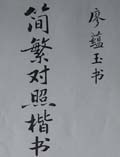 简繁对照楷书
廖蕴玉书